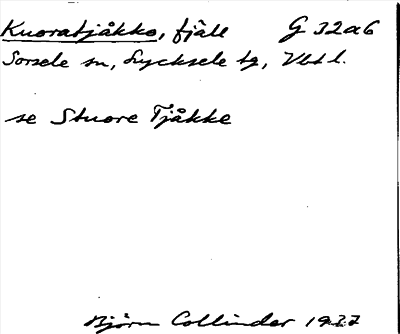 Kuoratjåkko, fjäll G 32a6
Sorsele sn, Lycksele tg, Vbtl.
se Stuore Tjåkke
Björn Collinder 1937